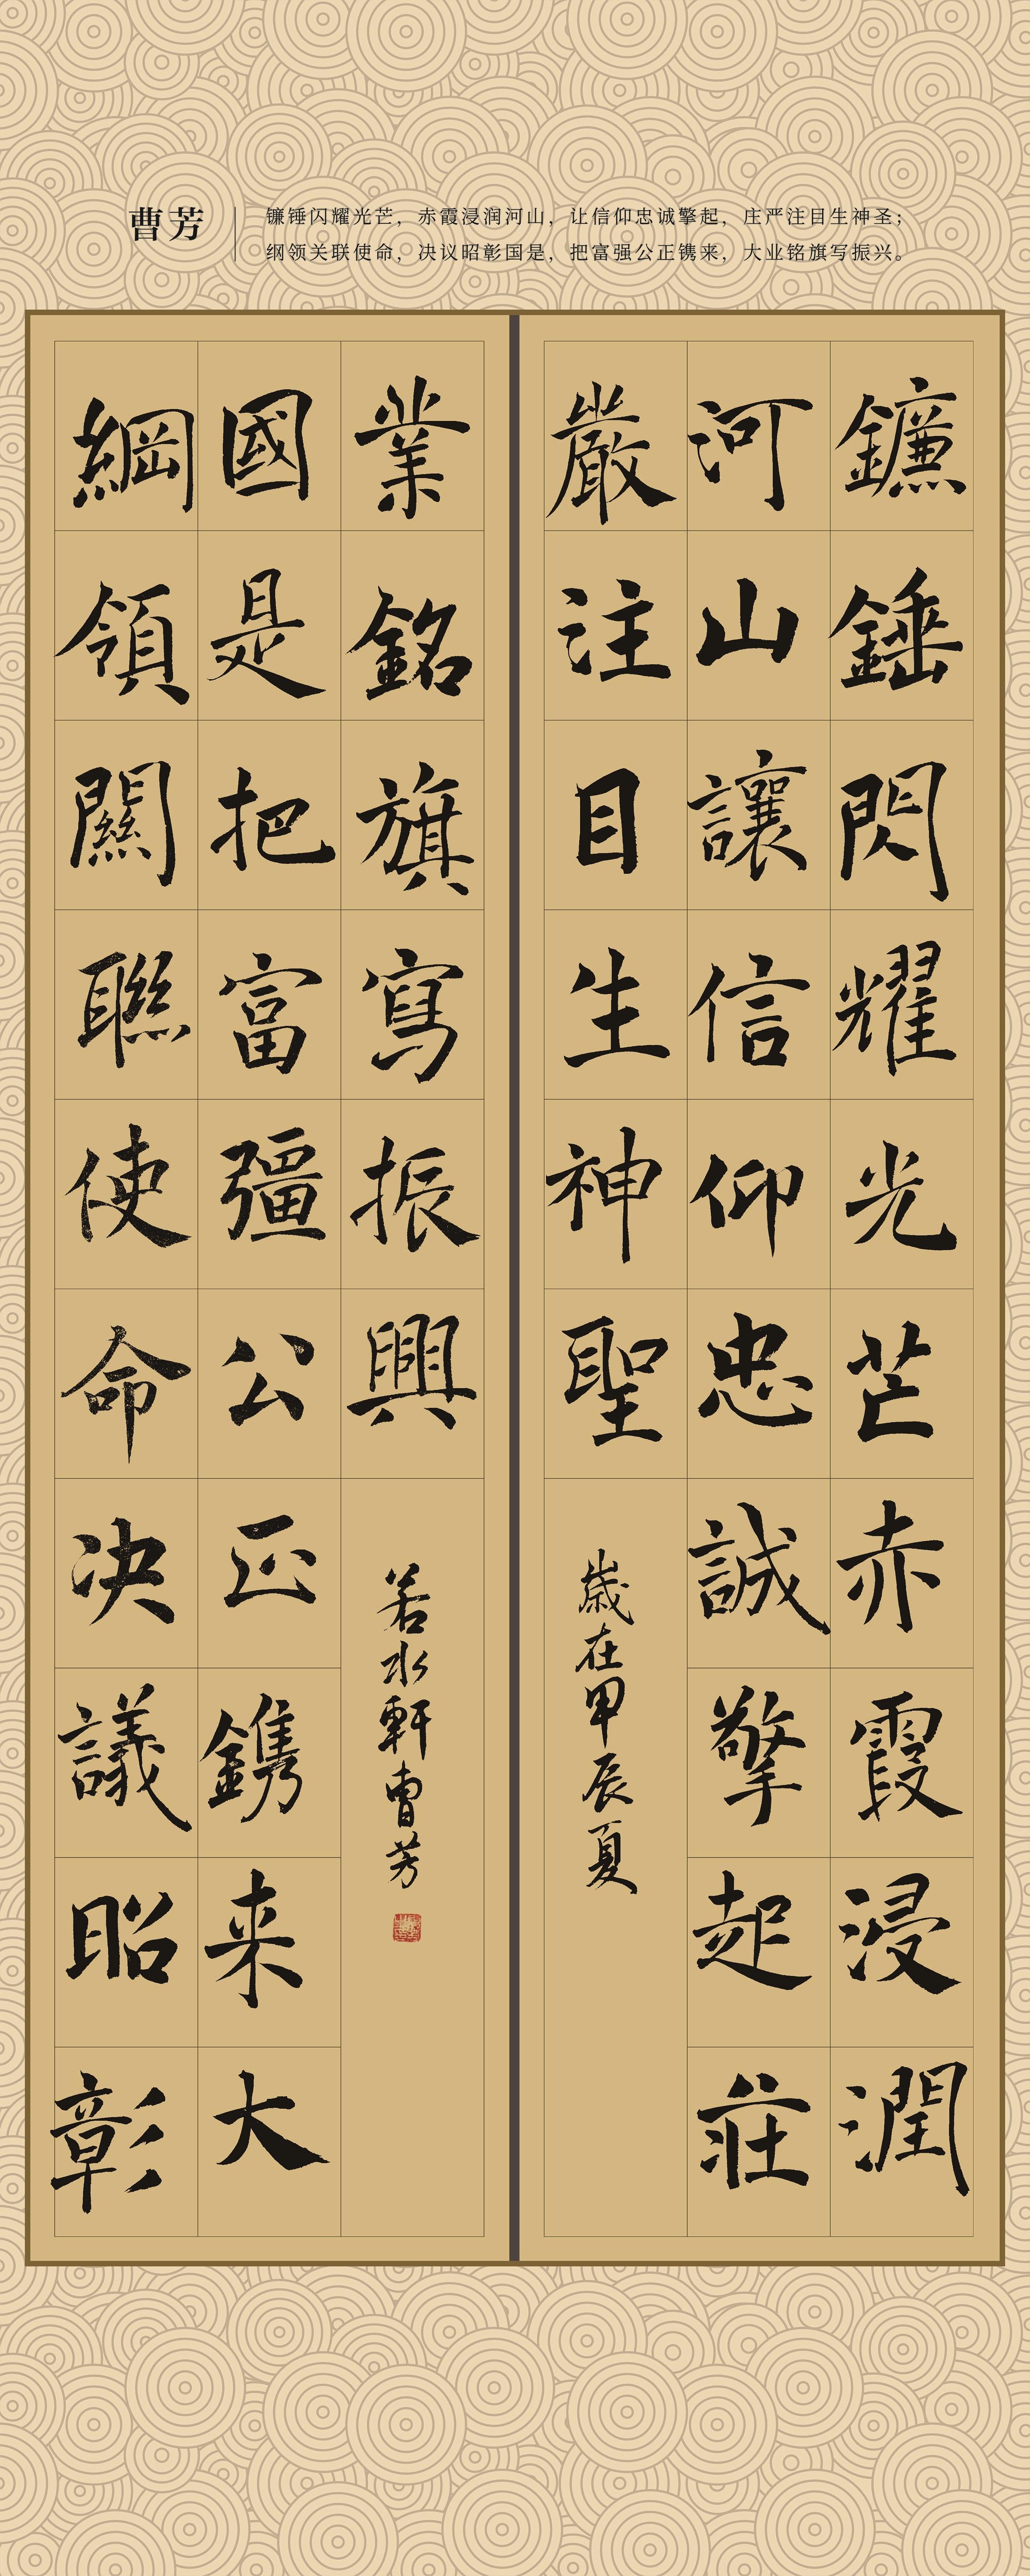 曹芳
镰锤闪耀光芒，赤霞浸润河山，让信仰忠诚擎起，庄严注目生神圣；
纲领关联使命，决议昭彰国是，把富强公正镌来，大业铭旗写振兴。
鐮錘閃耀光芒赤霞浸潤
河山讓信仰忠誠擎起莊
嚴注目生神聖
歲在甲辰夏
綱領關聯使命决議昭彰
國是把富彊公正鐫来大
業銘旗寫振興
若水軒曹芳